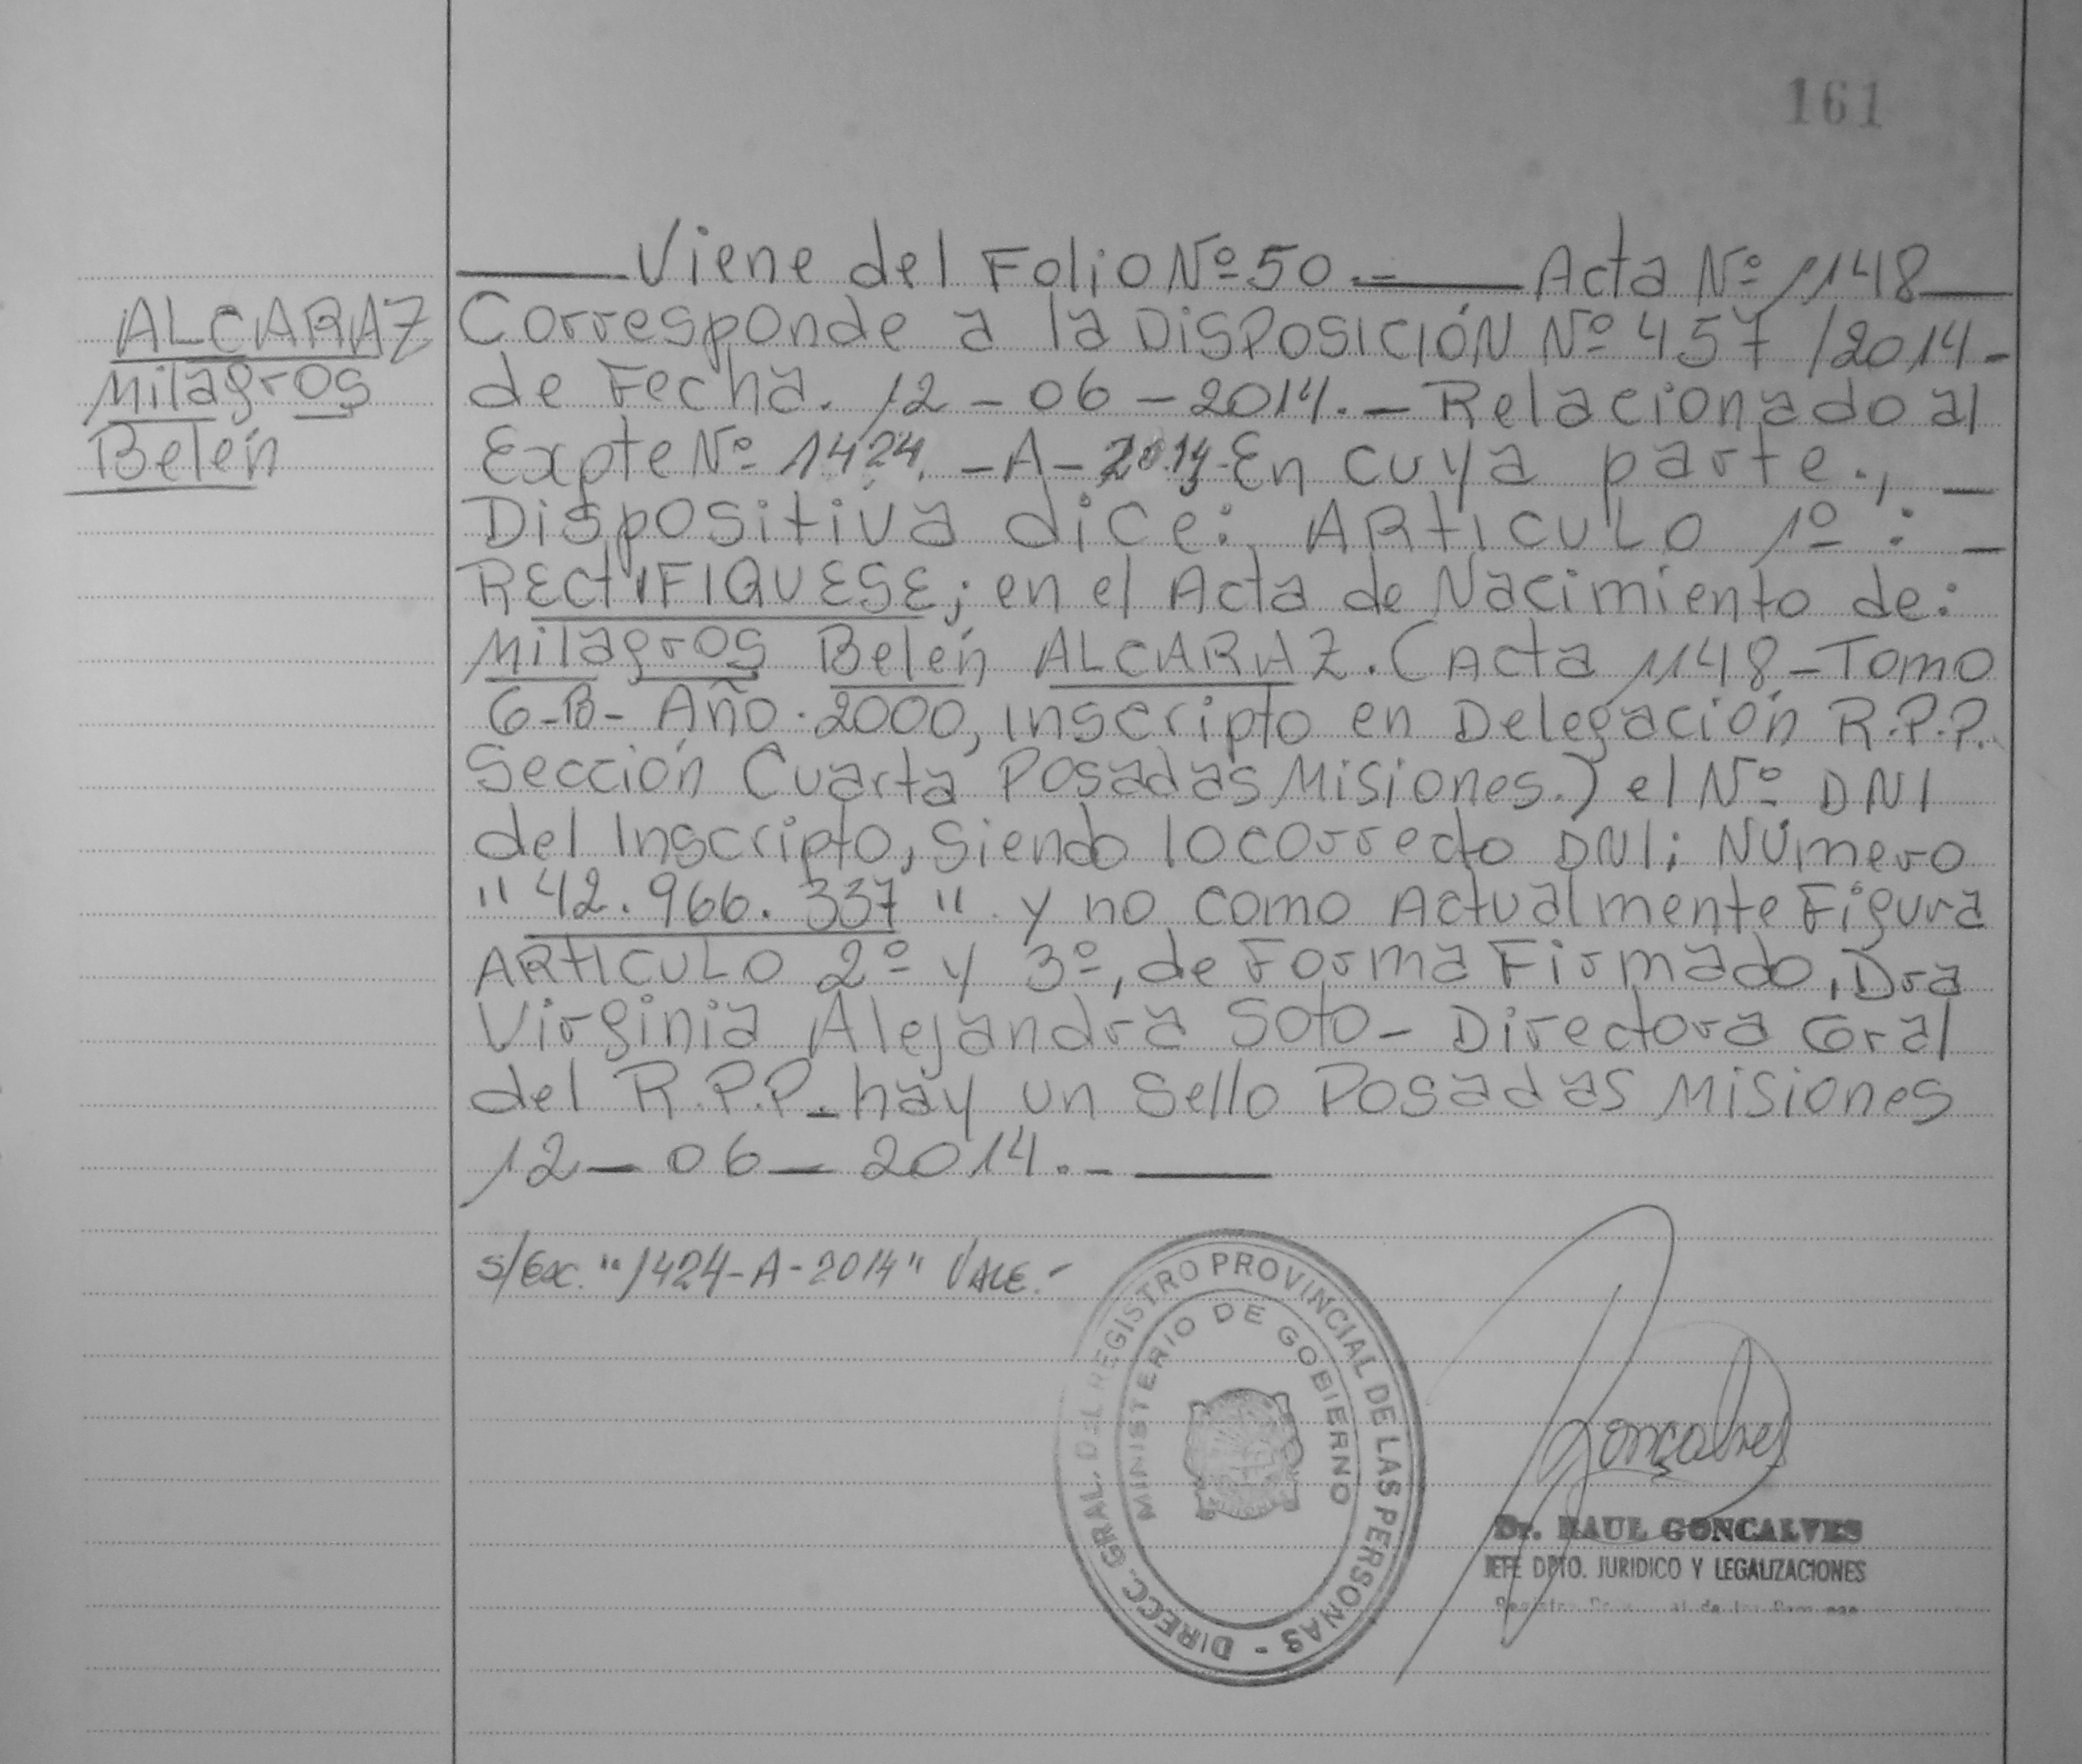 161
Viene del Folio Nº 50.- Acta Nº 1148
ALCARAZ
Milagros
Belén
Corresponde a la DISPOSICIÓN Nº 457/2014-
de Fecha. 12-06-2014.- Relacionado al
Expte Nº 1424 -A- 2014- En cuya parte.,
Dispositiva dice: ARTICULO 1º: -
RECTIFIQUESE; en el Acta de Nacimiento de:
Milagros Belén ALCARAZ. (Acta 1148-Tomo
6-B- Año. 2000, Inscripto en Delegación R.P.P.
Sección Cuarta Posadas Misiones.) el Nº DNI
del Inscripto, Siendo lo correcto DNI; Número
"42.966.337" y no como Actualmente Figura
ARTICULO 2º y 3º, de Forma Firmado, Dra
Virginia Alejandra Soto- Directora Gral
del R.P.P.- hay un Sello Posadas Misiones
12-06-2014.-
s/Exc. "1424-A-2014" VALE.-
DIRECC. GRAL. DEL REGISTRO PROVINCIAL DE LAS PERSONAS -
MINISTERIO DE GOBIERNO
Gonçalves
Dr. RAUL GONCALVES
JEFE DPTO. JURIDICO Y LEGALIZACIONES